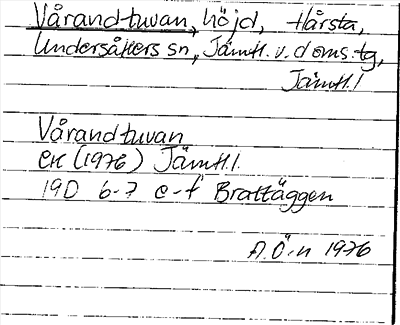 Vårandtuvan, höjd, Hårsta,
Undersåkers sn, Jämtl. v. doms. tg,
Jämtl. l
Vårandtuvan
ek (1976) Jämtl. l.
19D 6-7 e-f Brattäggen
A. Ö-n 1976